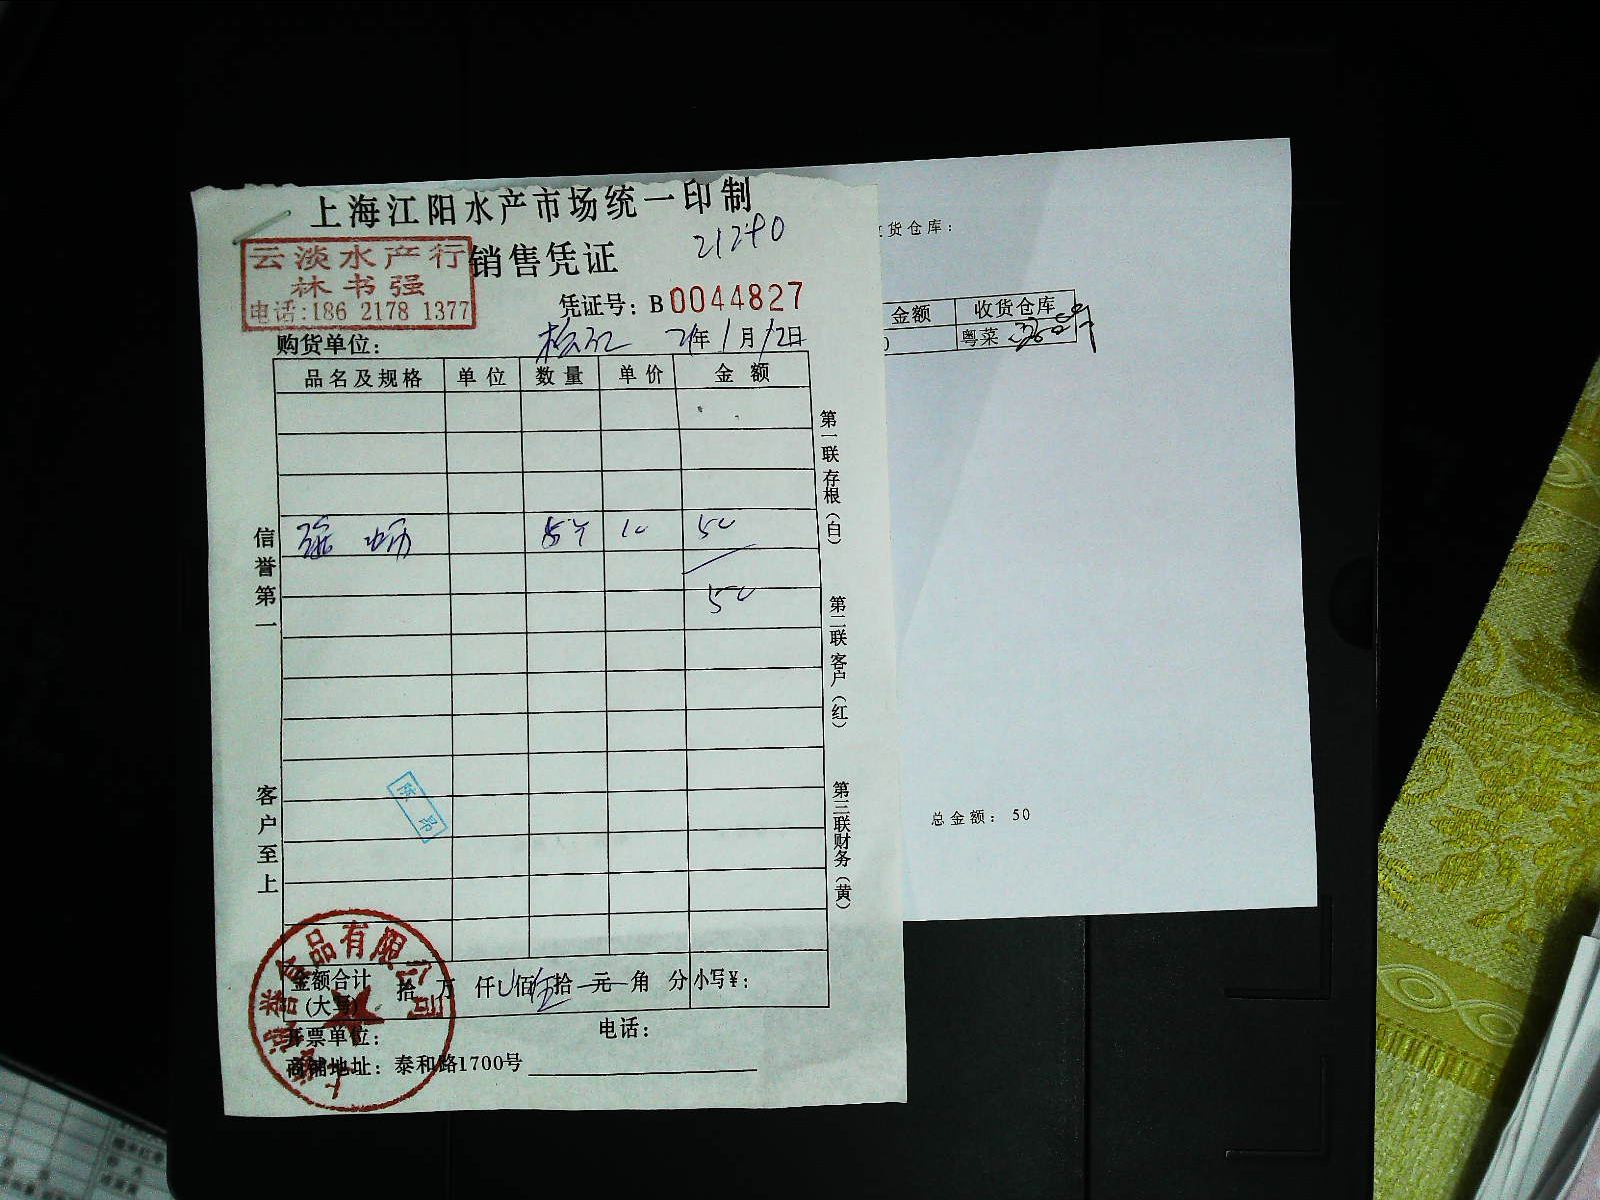 上海江阳水产市场统一印制
销售凭证
21290
云淡水产行
林书强
电话:186 2178 1377
凭证号: B0044827
购货单位:
21年1月12日
品名及规格 单位 数量 单价 金额
10 50
50
信誉第一
客户至上
第一联存根(白)
第二联客户(红)
第三联财务(黄)
金额合计(大写) 拾 万 仟 佰伍拾 元 角 分 小写¥:
开票单位: 电话:
商铺地址: 泰和路1700号
食品有限公司
货仓库:
金额 收货仓库
粤菜
总金额: 50